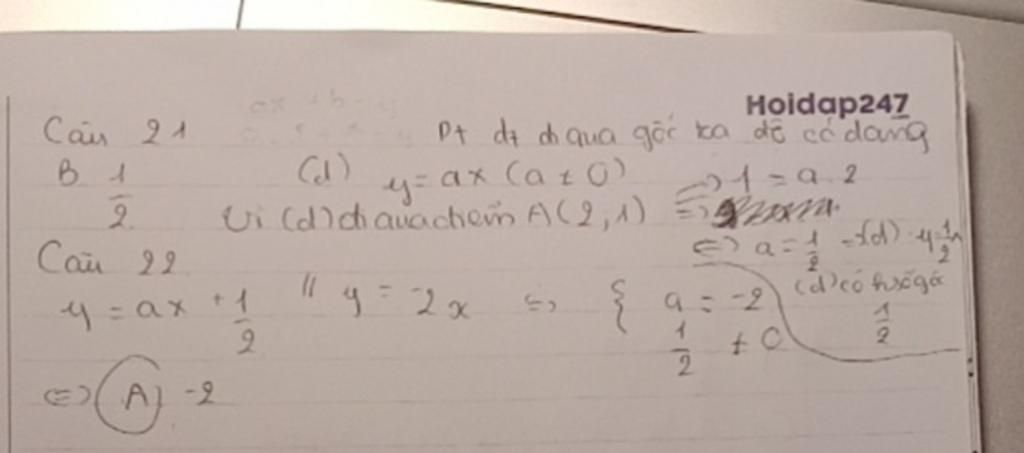 Hoidap247
Câu 21 Pt đt đi qua gốc toạ độ có dạng
B 1/2 (d) y = ax (a ≠ 0) => 1 = a.2
Vì (d) đi qua điểm A(2,1) =>
<=> a = 1/2 => (d): y = 1/2 x
(d) có hệ số góc 1/2
Câu 22
y = ax + 1/2 // y = -2x <=> { a = -2
1/2 ≠ 0
<=> (A) -2